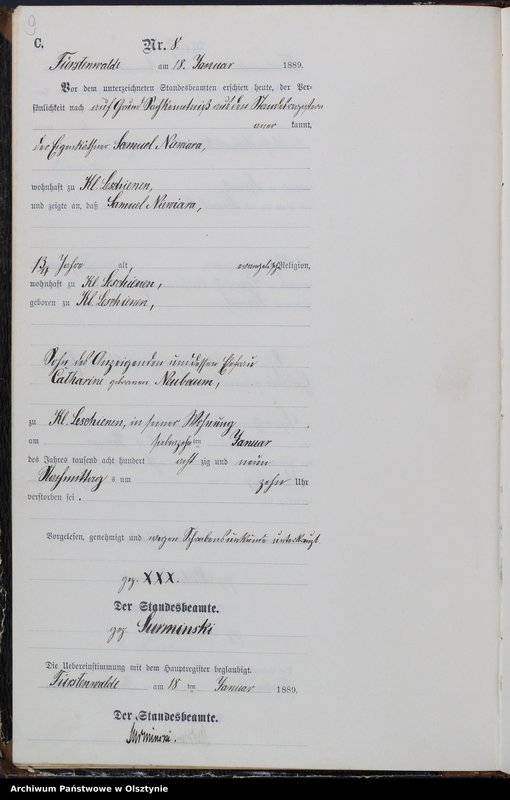 9
C.
Nr. 8
Fürstenwalde am 18. Januar 1889.
Vor dem unterzeichneten Standesbeamten erschien heute, der Per-
sönlichkeit nach auf Grund Sachkenntniß aus den Standesregistern
aner kannt,
der Eigenkäthner Samuel Niewiara,
wohnhaft zu Kl. Leschienen,
und zeigte an, daß Samuel Niewiara,
1 3/4 Jahre alt, evangelischer Religion,
wohnhaft zu Kl. Leschienen,
geboren zu Kl. Leschienen,
Sohn des Anzeigenden und dessen Ehefrau
Catharine geborenen Neubaum,
zu Kl. Leschienen, in seiner Wohnung
am siebenzehnten Januar
des Jahres tausend acht hundert acht zig und neun
Nachmittag s um zehn Uhr
verstorben sei.
Vorgelesen, genehmigt und wegen Schreibensunkunde unterkreuzt
gez. XXX.
Der Standesbeamte.
gez. Surminski
Die Uebereinstimmung mit dem Hauptregister beglaubigt.
Fürstenwalde am 18 ten Januar 1889.
Der Standesbeamte.
Surminski.
Archiwum Państwowe w Olsztynie